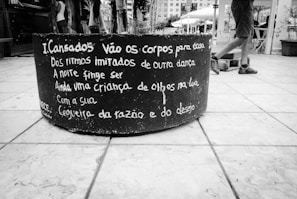 I Cansados vão os corpos para casa
Dos ritmos imitados de outra dança
A noite finge ser
Ainda uma criança de olhos na lua
Com a sua
Cegueira da razão e do desejo